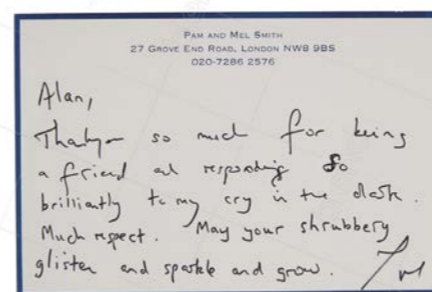 PAM AND MEL SMITH
27 GROVE END ROAD, LONDON NW8 9BS
020-7286 2576
Alan,
Thankyou so much for being
a friend and responding so
brilliantly to my cry in the dark.
Much respect. May your shrubbery
glisten and sparkle and grow.